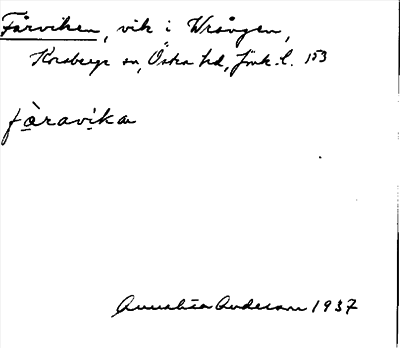 Fårviken, vik i Wrången,
Korsberga sn, Östra hd, Jönk. l. 153
fàravika
Annalisa Anderson 1937